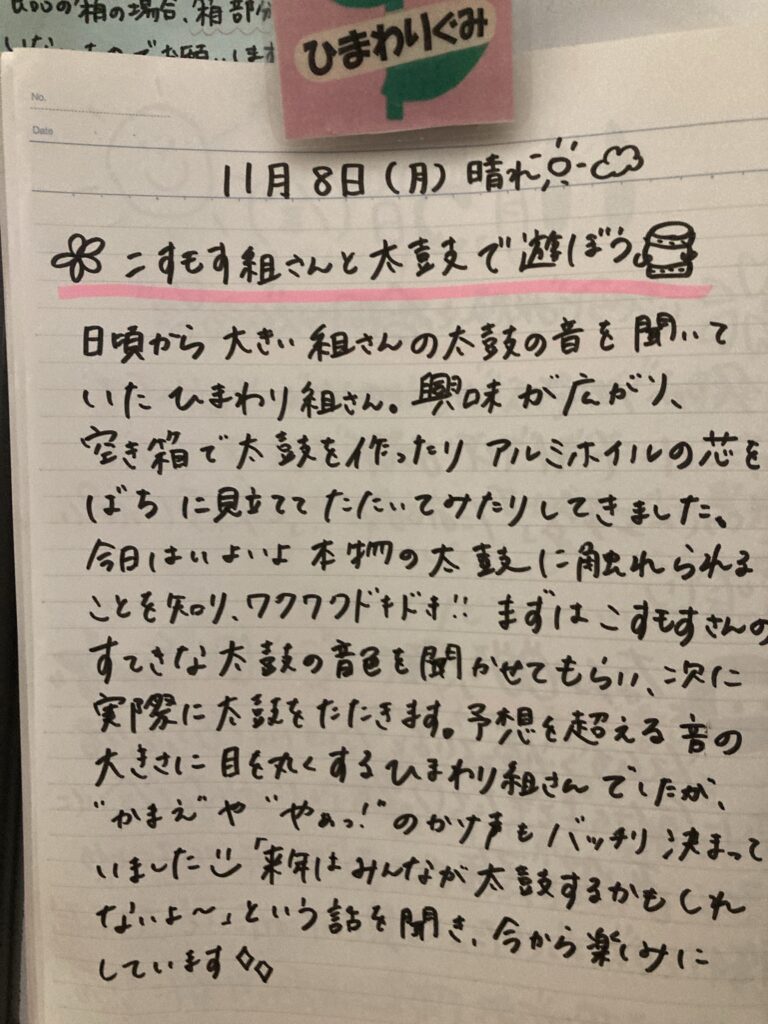 品の箱の場合、箱部分
ひまわりぐみ
No.
Date
11月8日(月)晴れ
こすもす組さんと太鼓で遊ぼう♪
日頃から大きい組さんの太鼓の音を聞いて
いたひまわり組さん。興味が広がり、
空き箱で太鼓を作ったりアルミホイルの芯を
ばちに見立ててたたいてみたりしてきました。
今日はいよいよ本物の太鼓に触れられる
ことを知り、ワクワクドキドキ!! まずはこすもすさんの
すてきな太鼓の音色を聞かせてもらい、次に
実際に太鼓をたたきます。予想を超える音の
大きさに目を丸くするひまわり組さんでしたが、
"かまえ"や"やぁっ!"のかけ声もバッチリ決まって
いました 「来年はみんなが太鼓するかもしれ
ないよ〜」という話を聞き、今から楽しみに
しています